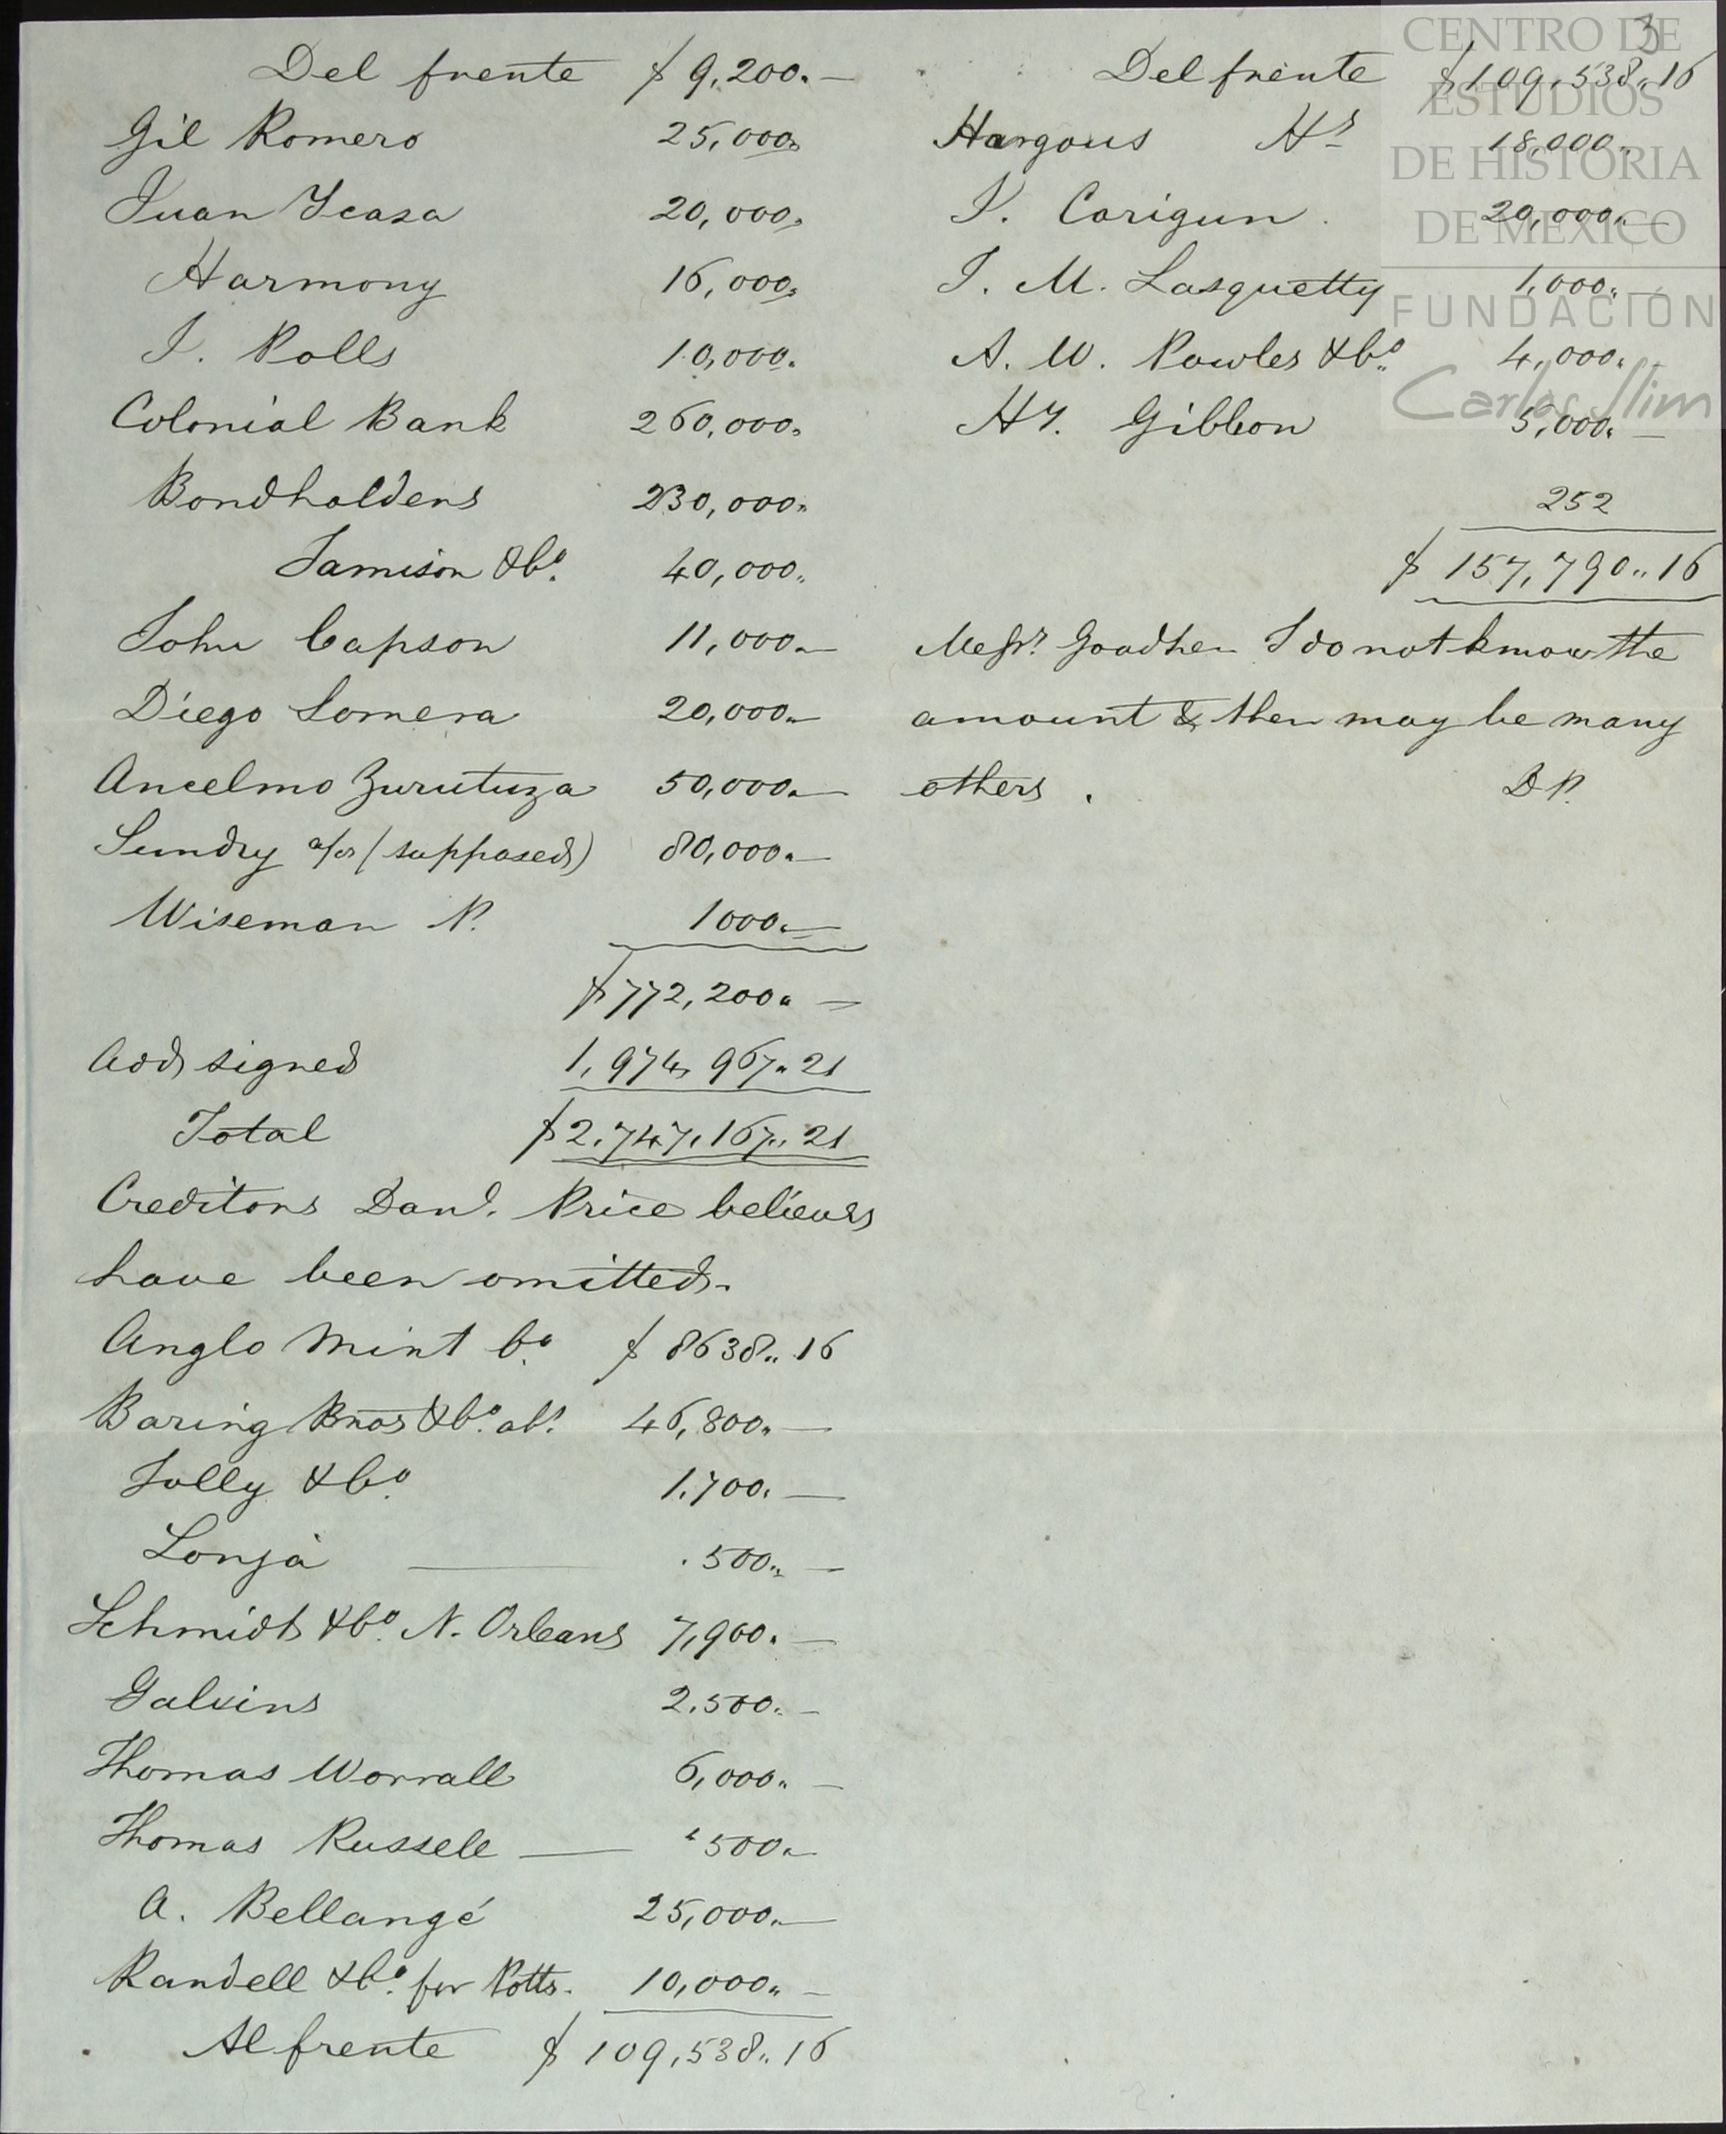 Del frente $ 9,200.. —
Gil Romero 25,000..
Juan Ycaza 20,000..
Harmony 16,000..
J. Polls 10,000..
Colonial Bank 260,000..
Bondholders 230,000..
Jamison & Co. 40,000..
John Capson 11,000.. —
Diego Somera 20,000.. —
Ancelmo Zurutuza 50,000.. —
Sundry a/cs (supposed) 80,000.. —
Wiseman P. 1000.. —
$ 772,200.. —
Add signed 1,974,967.. 21
Total $ 2,747,167.. 21
Creditors Danl. Price believes
have been omitted.
Anglo Mint Co. $ 8638.. 16
Baring Bros & Co. abt. 46,800.. —
Jolly & Co. 1,700.. —
Lonja — 500.. —
Schmidt & Co. N. Orleans 7,900.. —
Galvins 2,500.. —
Thomas Worrall 6,000.. —
Thomas Russell — 500.. —
A. Bellangé 25,000.. —
Randell & Co. for Potts. 10,000.. —
Al frente $ 109,538.. 16
3
Del frente $ 109,538.. 16
Hargous Hs 18,000..
P. Carigun 20,000.. —
J. M. Lasquetty 1,000.. —
A. W. Powles & Co. 4,000..
Hy. Gibbon 5,000.. —
252
$ 157,790.. 16
Messrs. Goodhen I do not know the
amount & then may be many
others. D P.
CENTRO DE
ESTUDIOS
DE HISTORIA
DE MÉXICO
FUNDACIÓN
Carlos Slim